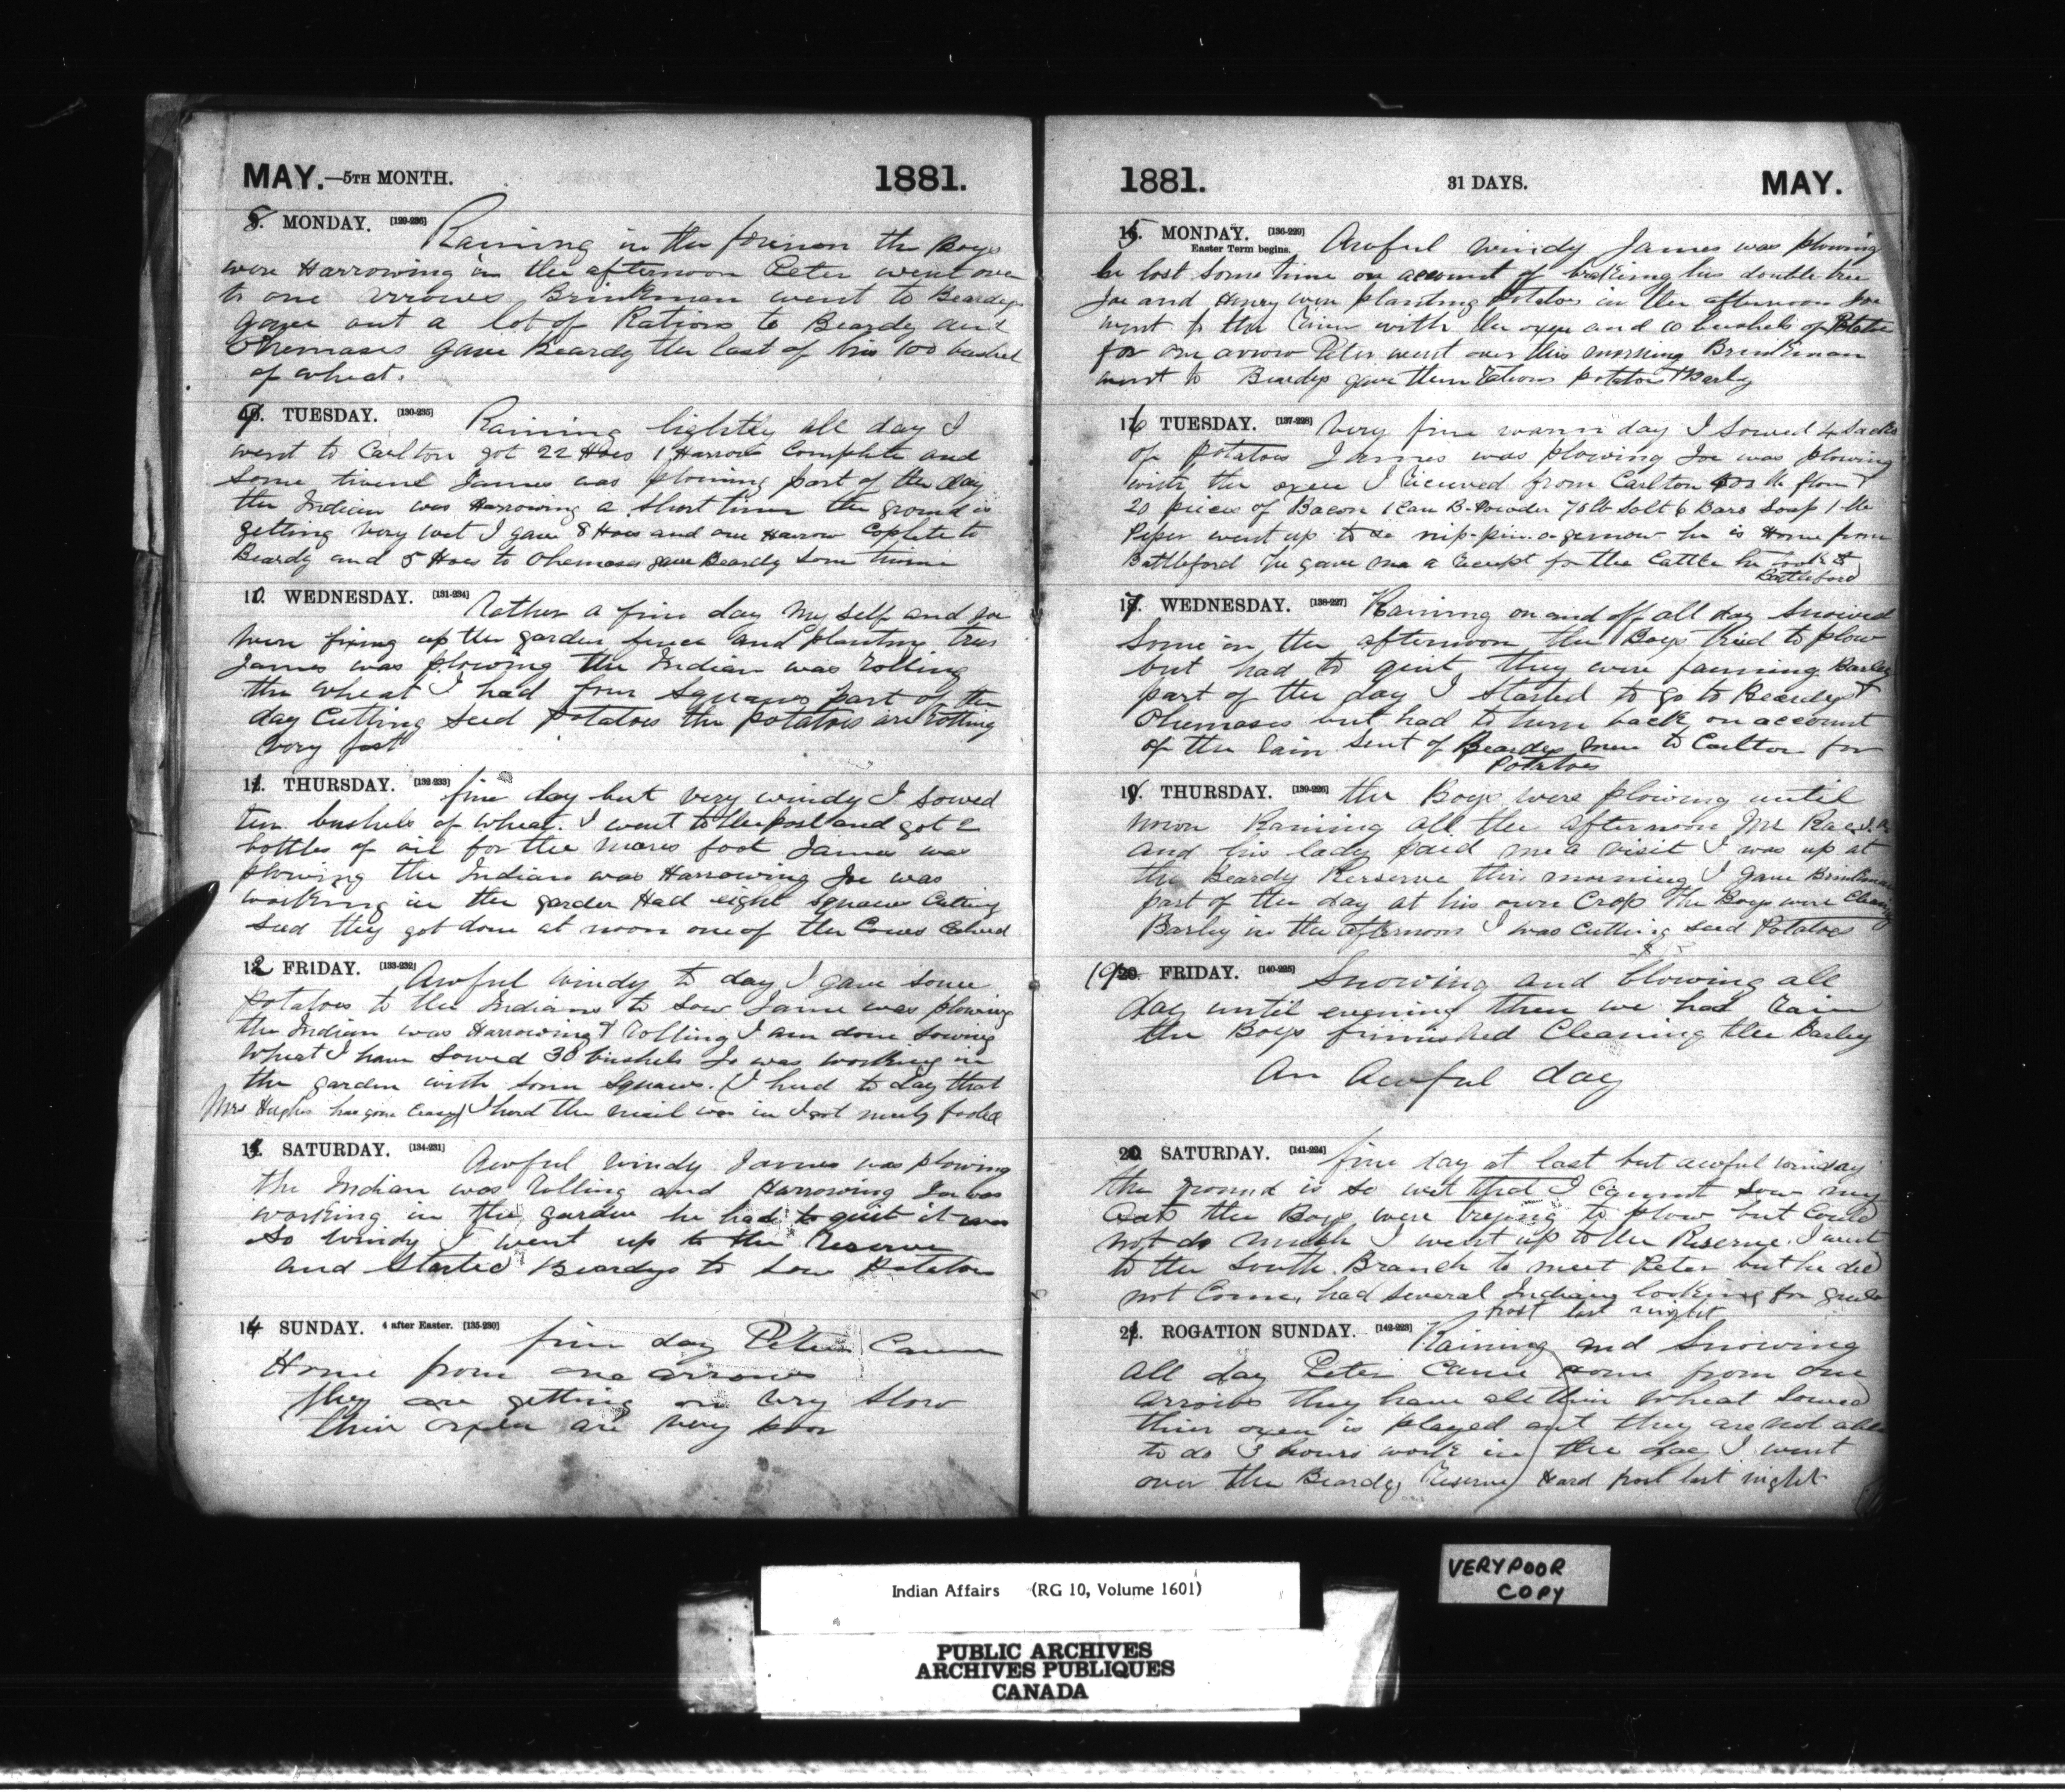 MAY.—5TH MONTH. 1881.
8. MONDAY. [129-236] Raining in the forenon the Boys
were Harrowing in the afternoon Peter went over
to one arrows Brinkman went to Beardys
gave out a lot of Rations to Beardy and
Ohemases gave Beardy the last of his 100 bushel
of wheat.
9. TUESDAY. [130-235] Raining lightly all day I
went to Carlton got 22 Hoes 1 Harrow Complete and
some James was plowing part of the day
the Indian was Harrowing a short time the ground is
getting very wet I gave 8 Hoes and one Harrow Coplete to
Beardy and 5 Hoes to Ohemases gave Beardy som
10. WEDNESDAY. [131-234] Rather a fine day My self and Joe
were fixing up the garden fence and planting trees
James was plowing the Indian was Rolling
the wheat I had four squaws part of the
day Cutting seed potatoes the potatoes are Rotting
very fast
11. THURSDAY. [132-233] fine day but very windy I sowed
ten bushels of wheat. I went to the post and got 2
bottles of oil for the mares foot James was
plowing the Indian was Harrowing Joe was
working in the garden Had eight squaws Cutting
seed they got done at noon one of the Cows Calved
12 FRIDAY. [133-232] Awful windy to day I gave some
potatoes to the Indians to sow Jame was plowing
the Indian was Harrowing & Rolling I am done sowing
wheat I have sowed 30 bushels Jo was working in
the garden with som squaws. (I hird to day that
Mrs Hughes has gone Crazy) I herd the mail was in I got nicely fooled
13. SATURDAY. [134-231] Awful windy James was plowing
the Indian was Rolling and Harrowing Joe was
working in the garden he had to quit it was
so windy I went up to the Reserve
and Started Beardys to sow Potatoes
14 SUNDAY. 4 after Easter. [135-230] fine day Peter Came
Home from one arrows
they are getting on very slow
their oxen are very poor
1881. 31 DAYS. MAY.
15. MONDAY. [136-229] Awful windy James was plowing
Easter Term begins.
he lost some time on account of braking his double tree
Joe and Henry were planting potatoes in the afternoon Joe
went to the River with the oxen and 10 bushels of Potatoe
for one arrow Peter went over this morning Brinkman
went to Beardys gave them Rations potatoes & Barley
16 TUESDAY. [137-228] Very fine warm day I Sowed 4 Sacks
of potatoes James was plowing Joe was plowing
with the oxen I Recieved from Carlton lb flour &
20 pieces of Bacon 1 Can B-Powder 75 lb Salt 6 Bars Soap 1 lb
Peper went up to he is Home from
Battleford He gave me a Receipt for the Cattle he took to
Battleford
17. WEDNESDAY. [138-227] Raining on and off all day snowed
some in the afternoon the Boys tried to plow
but had to quit they were fanning Barley
part of the day I started to go to Beardys &
Ohemases but had to turn back on account
of the Rain sent of Beardys men to Carlton for
Potatoes
18. THURSDAY. [139-226] the Boys were plowing until
noon Raining all the afternoon Mr Rae
and his lady paid me a visit I was up at
the Beardy Rerserve this morning I gave Brinkman
part of the day at his own Crop The Boys were Cleaning
Barley in the afternoon I was Cutting seed Potatoes
19 20. FRIDAY. [140-225] Snowing and blowing all
day until evening then we had Rain
the Boys finnished Cleaning the Barley
An Awful day
20. SATURDAY. [141-224] fine day at last but awful winday
the ground is so wet that I Cannot sow my
Oats the Boys were trying to plow but Could
not do much I went up to the Riserve. I went
to the South Branch to meet Peter but he did
not Come, had several Indians looking for
frost last night
21. ROGATION SUNDAY. [142-223] Raining and Snowing
all day Peter Came home from One
arrows they have all thier wheat sowed
thier oxen is played out they are not able
to do 3 hours work in the day I went
over the Beardy Reserve Hard frost last night
VERY POOR
COPY
Indian Affairs (RG 10, Volume 1601)
PUBLIC ARCHIVES
ARCHIVES PUBLIQUES
CANADA